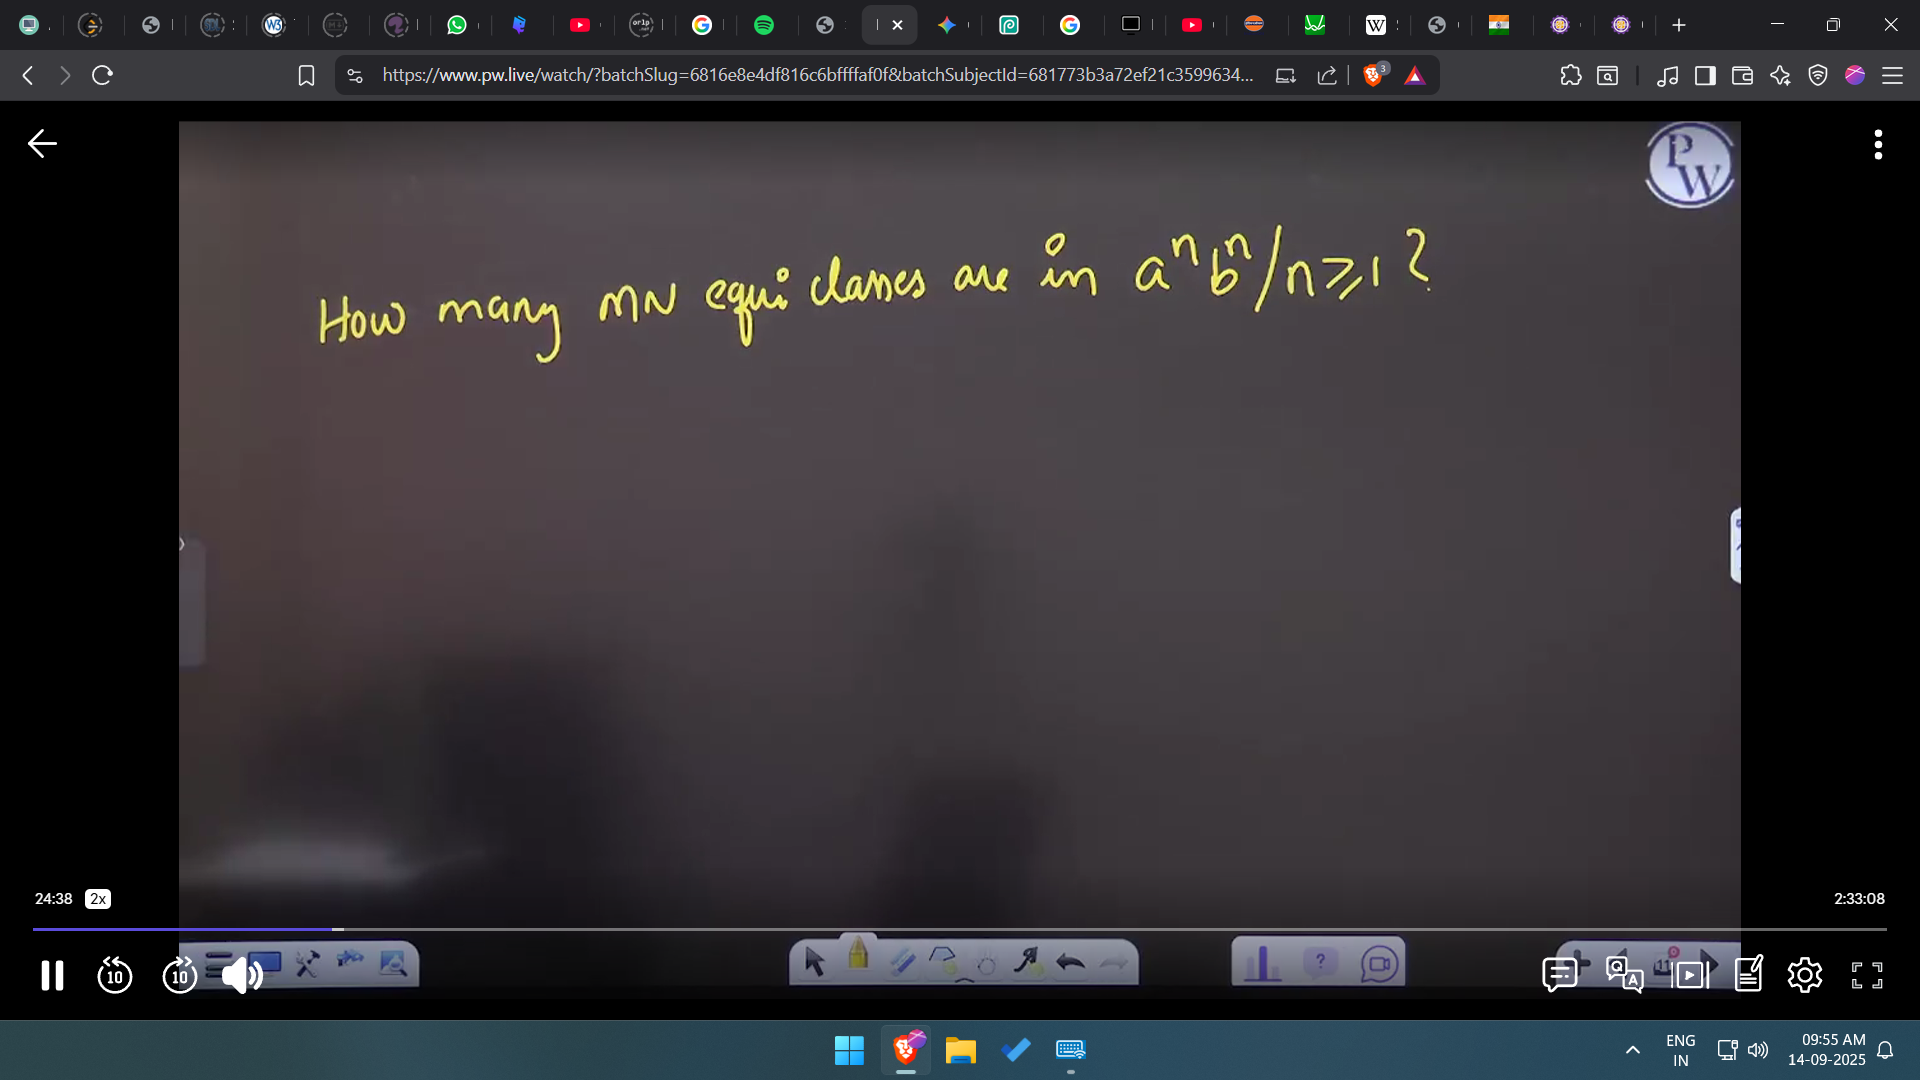 https://www.pw.live/watch/?batchSlug=6816e8e4df816c6bffffaf0f&batchSubjectId=681773b3a72ef21c3599634...
3
PW
How many MN equi classes are in aⁿbⁿ/n⩾1 ?
24:38 2x
2:33:08
10 10
ENG
IN
09:55 AM
14-09-2025